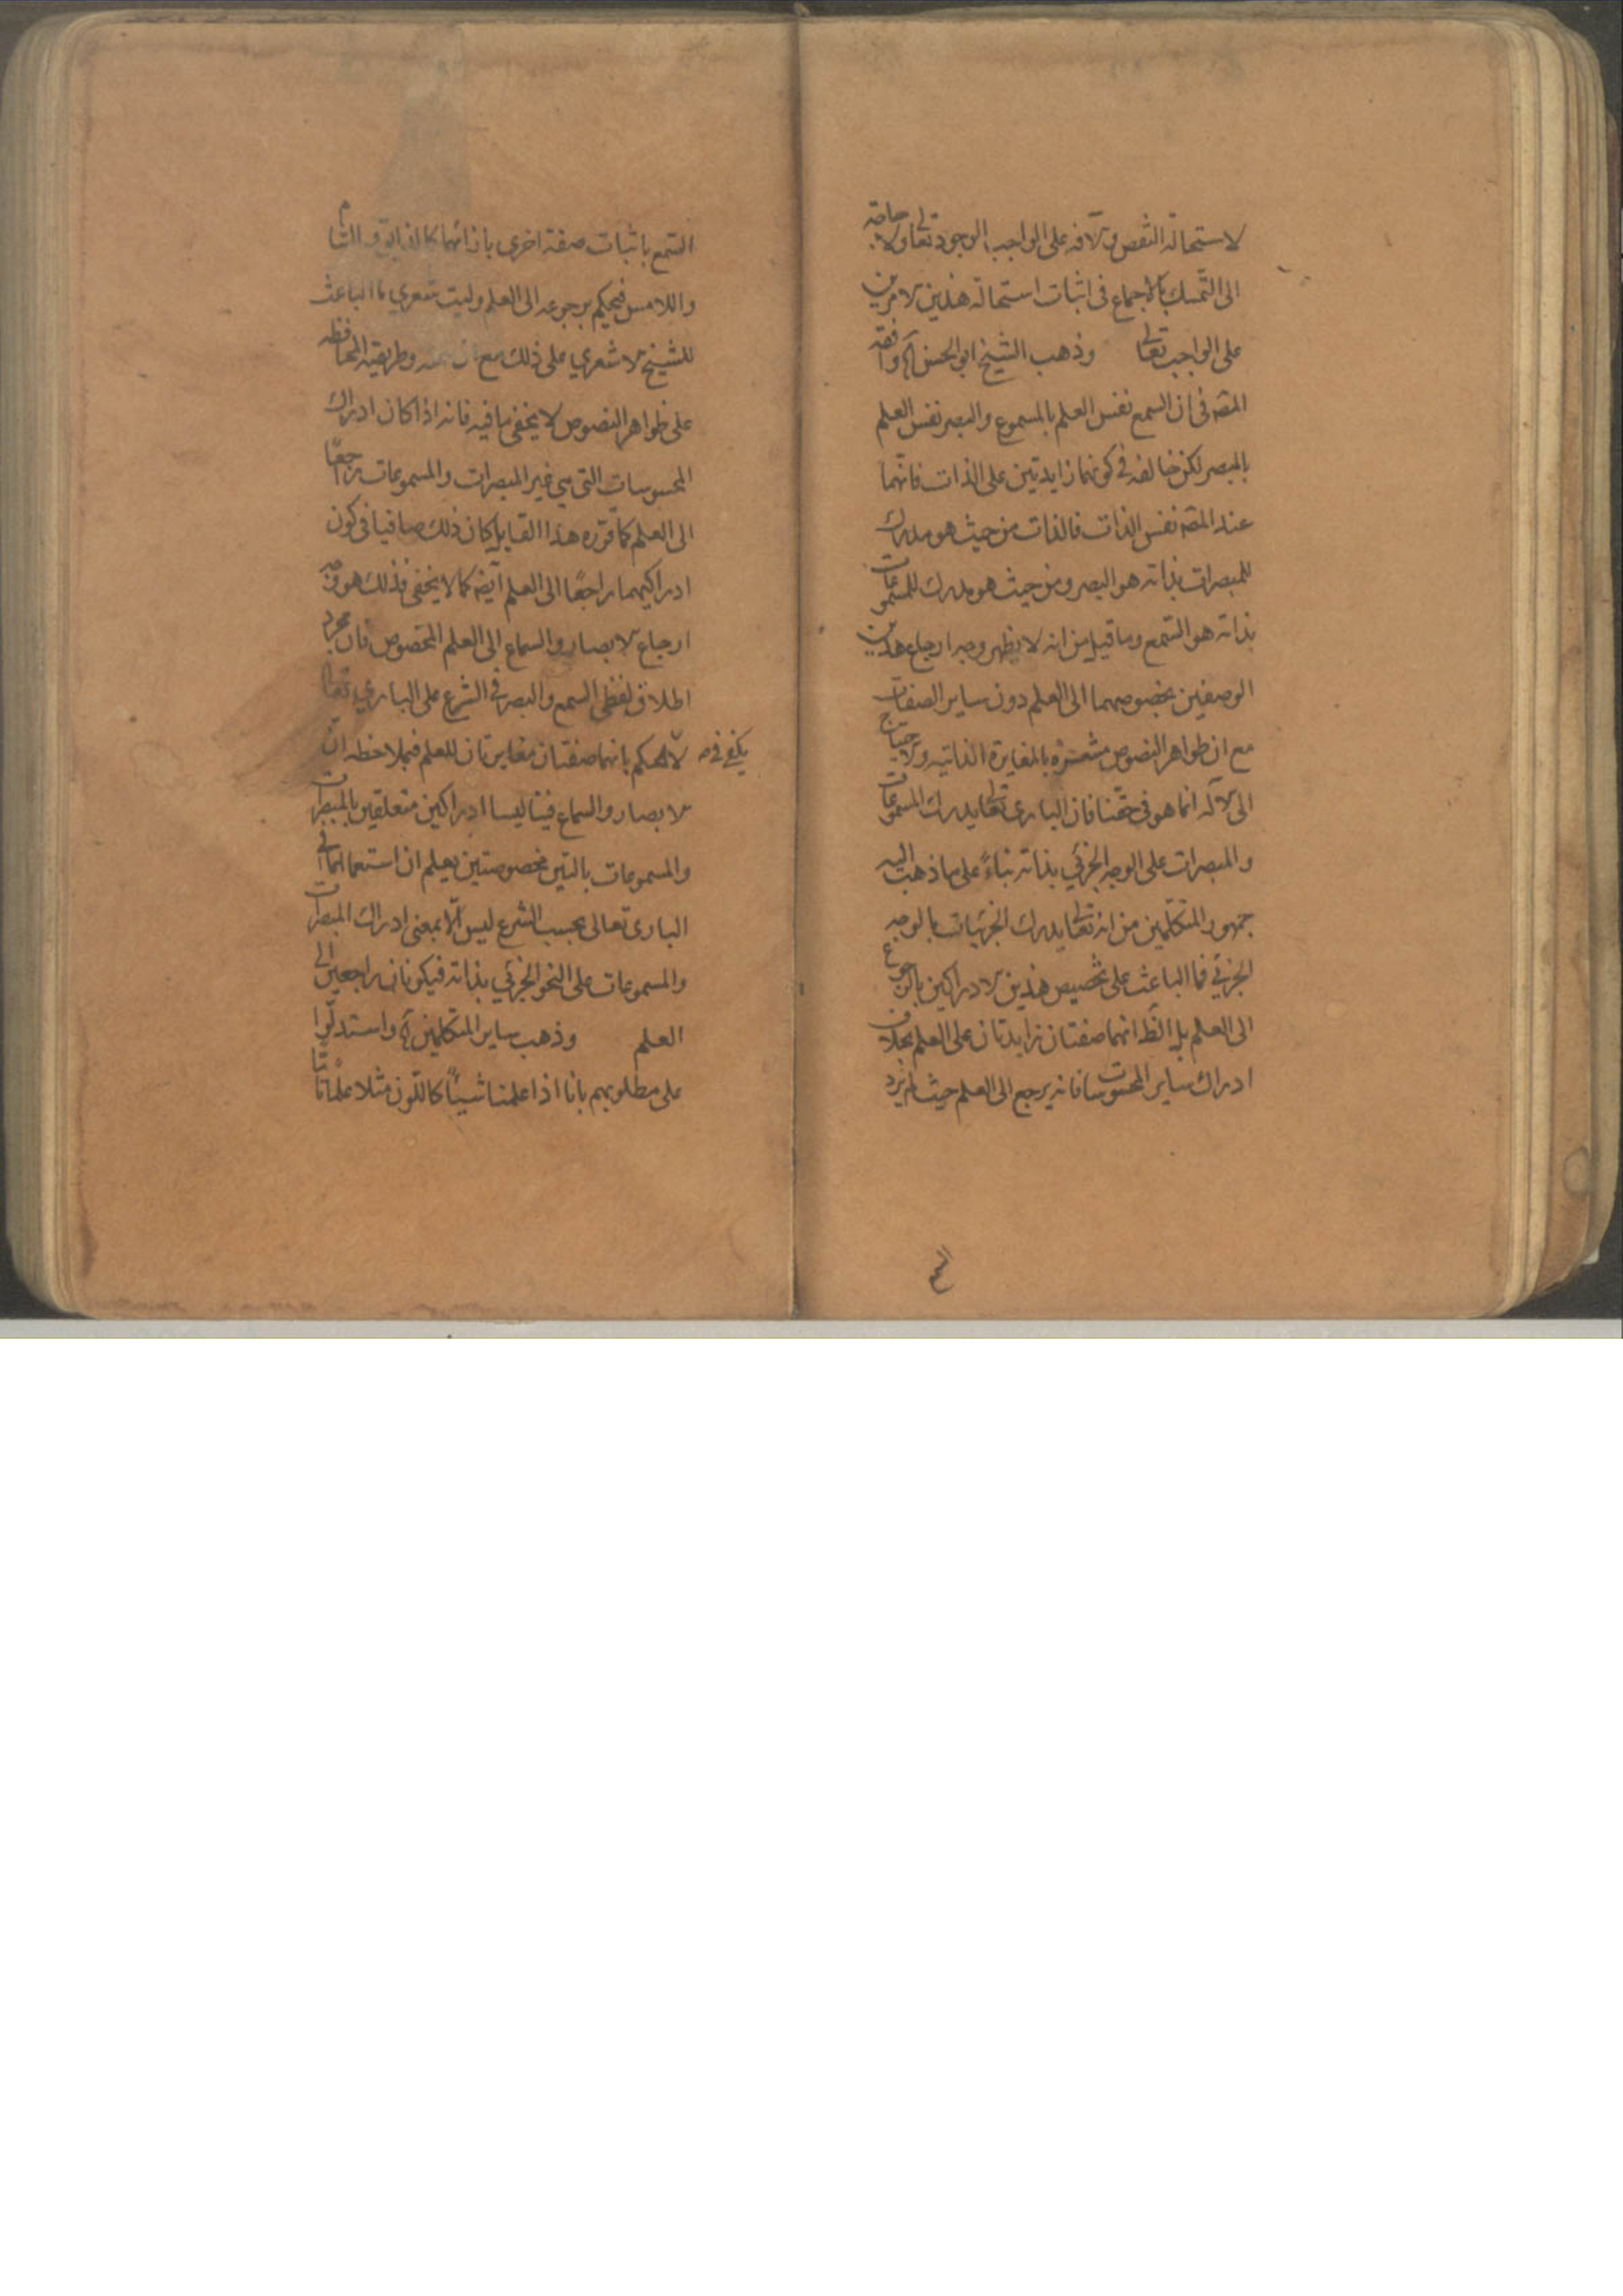 لاستحالة النقص والآفه على الواجب الوجود تعالى ولا حاجة
الى التمسك بالاجماع فى اثبات استحالة هذين الامرين
على الواجب تعالى وذهب الشيخ ابو الحسن وافقه
المصه فى ان السمع نفس العلم بالمسموع والبصر نفس العلم
بالمبصر لكن خالفه فى كونهما زايدتين على الذات فانهما
عند المصه نفس الذات فالذات من حيث هو مدرك
للمبصرات بذاته هو البصر ومن حيث هو مدرك للمسموعات
بذاته هو السمع وما قيل من انه لا يظهر وجه ارجاع هذين
الوصفين بخصوصهما الى العلم دون ساير الصفات
مع ان ظواهر النصوص مشعرة بالمغايرة الذاتيه والاحتياج
الى الآله انما هو فى حقنا فان البارى تعالى يدرك المسموعات
والمبصرات على الوجه الجزئي بذاته بناءً على ما ذهبت اليه
جمهور المتكلمين من انه تعالى يدرك الجزئيات بالوجه
الجزئي فما الباعث على تخصيص هذين الادراكين بالرجوع
الى العلم بل الظ انهما صفتان زايدتان على العلم بخلاف
ادراك ساير المحسوسات فانه يرجع الى العلم حيث لم يرد
السمع باثبات صفة اخرى بازائهما كالذايق والشام
واللامس فيحكم برجوعه الى العلم وليت شعري ما الباعث
للشيخ الاشعري على ذلك مع ان وطريقته المحافظه
على ظواهر النصوص لا يخفى ما فيه فانه اذا كان ادراك
المحسوسات التي هي غير المبصرات والمسموعات راجعًا
الى العلم كما قرره هذا القايل كان ذلك صافيا فى كون
ادراكيهما راجعًا الى العلم ايضه كما لا يخفى فذلك هو وجه
ارجاع الابصار والسماع الى العلم المخصوص فان مجرد
اطلاق لفظى السمع والبصر فى الشرع على البارى تعالى
لا يكفى فى الحكم بانهما صفتان مغايرتان للعلم فبملاحظه ان
الابصار والسماع فينا ليسا ادراكين متعلقين بالمبصرات
والمسموعات بالتين مخصوصتين يعلم ان استعمالهما فى
البارى تعالى بحسب الشرع ليس الا بمعنى ادراك المبصرات
والمسموعات على النحو الجزئي بذاته فيكونان راجعين الى
العلم وذهب ساير المتكلمين واستدلوا
على مطلوبهم بانا اذا علمنا شيئًا كاللون مثلا علمًا تامًا